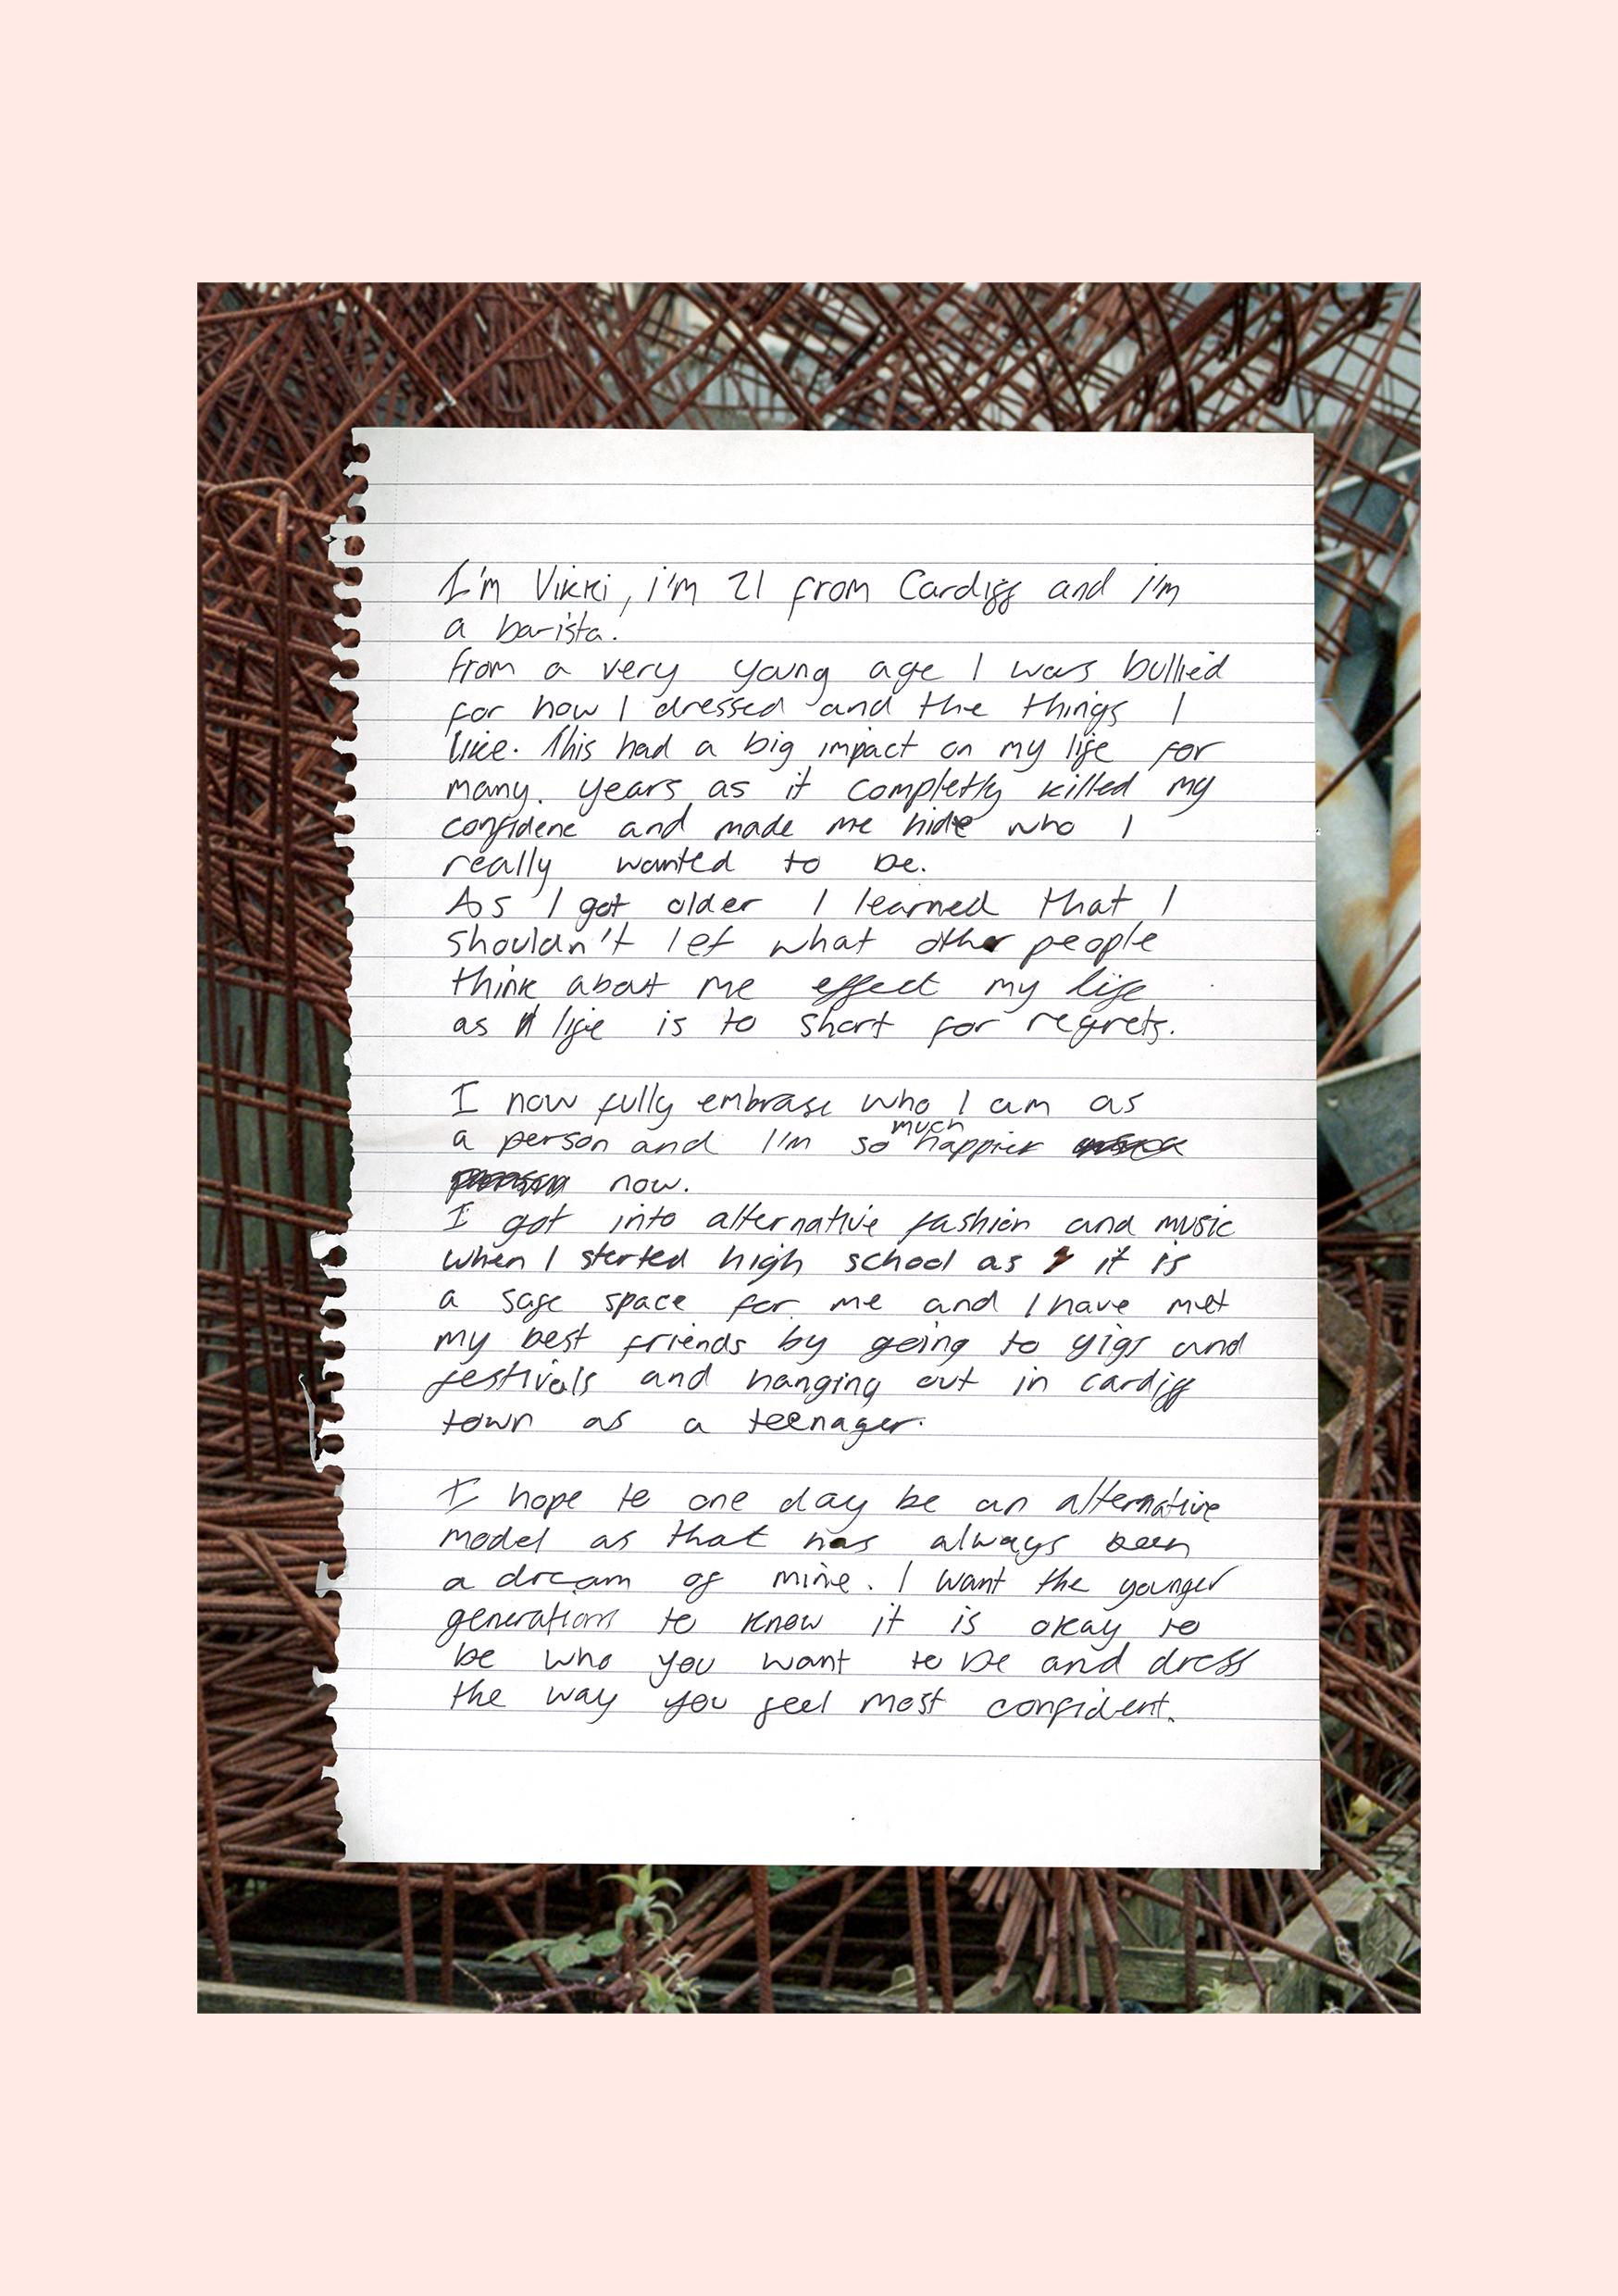 I'm Vikki, i'm 21 from Cardiff and i'm
a barista.
from a very young age I was bullied
for how I dressed and the things I
like. This had a big impact on my life for
many. years as it completly killed my
confidene and made me hide who I
really wanted to be.
As I got older I learned that I
shouldn't let what other people
think about me effect my life
as life is to short for regrets.
I now fully embrase who I am as
a person and I'm so much happier
now.
I got into alternative fashion and music
when I started high school as it is
a safe space for me and I have met
my best friends by going to gigs and
festivals and hanging out in cardiff
town as a teenager.
I hope to one day be an alternative
model as that has always been
a dream of mine. I want the younger
generations to know it is okay to
be who you want to be and dress
the way you feel most confident.